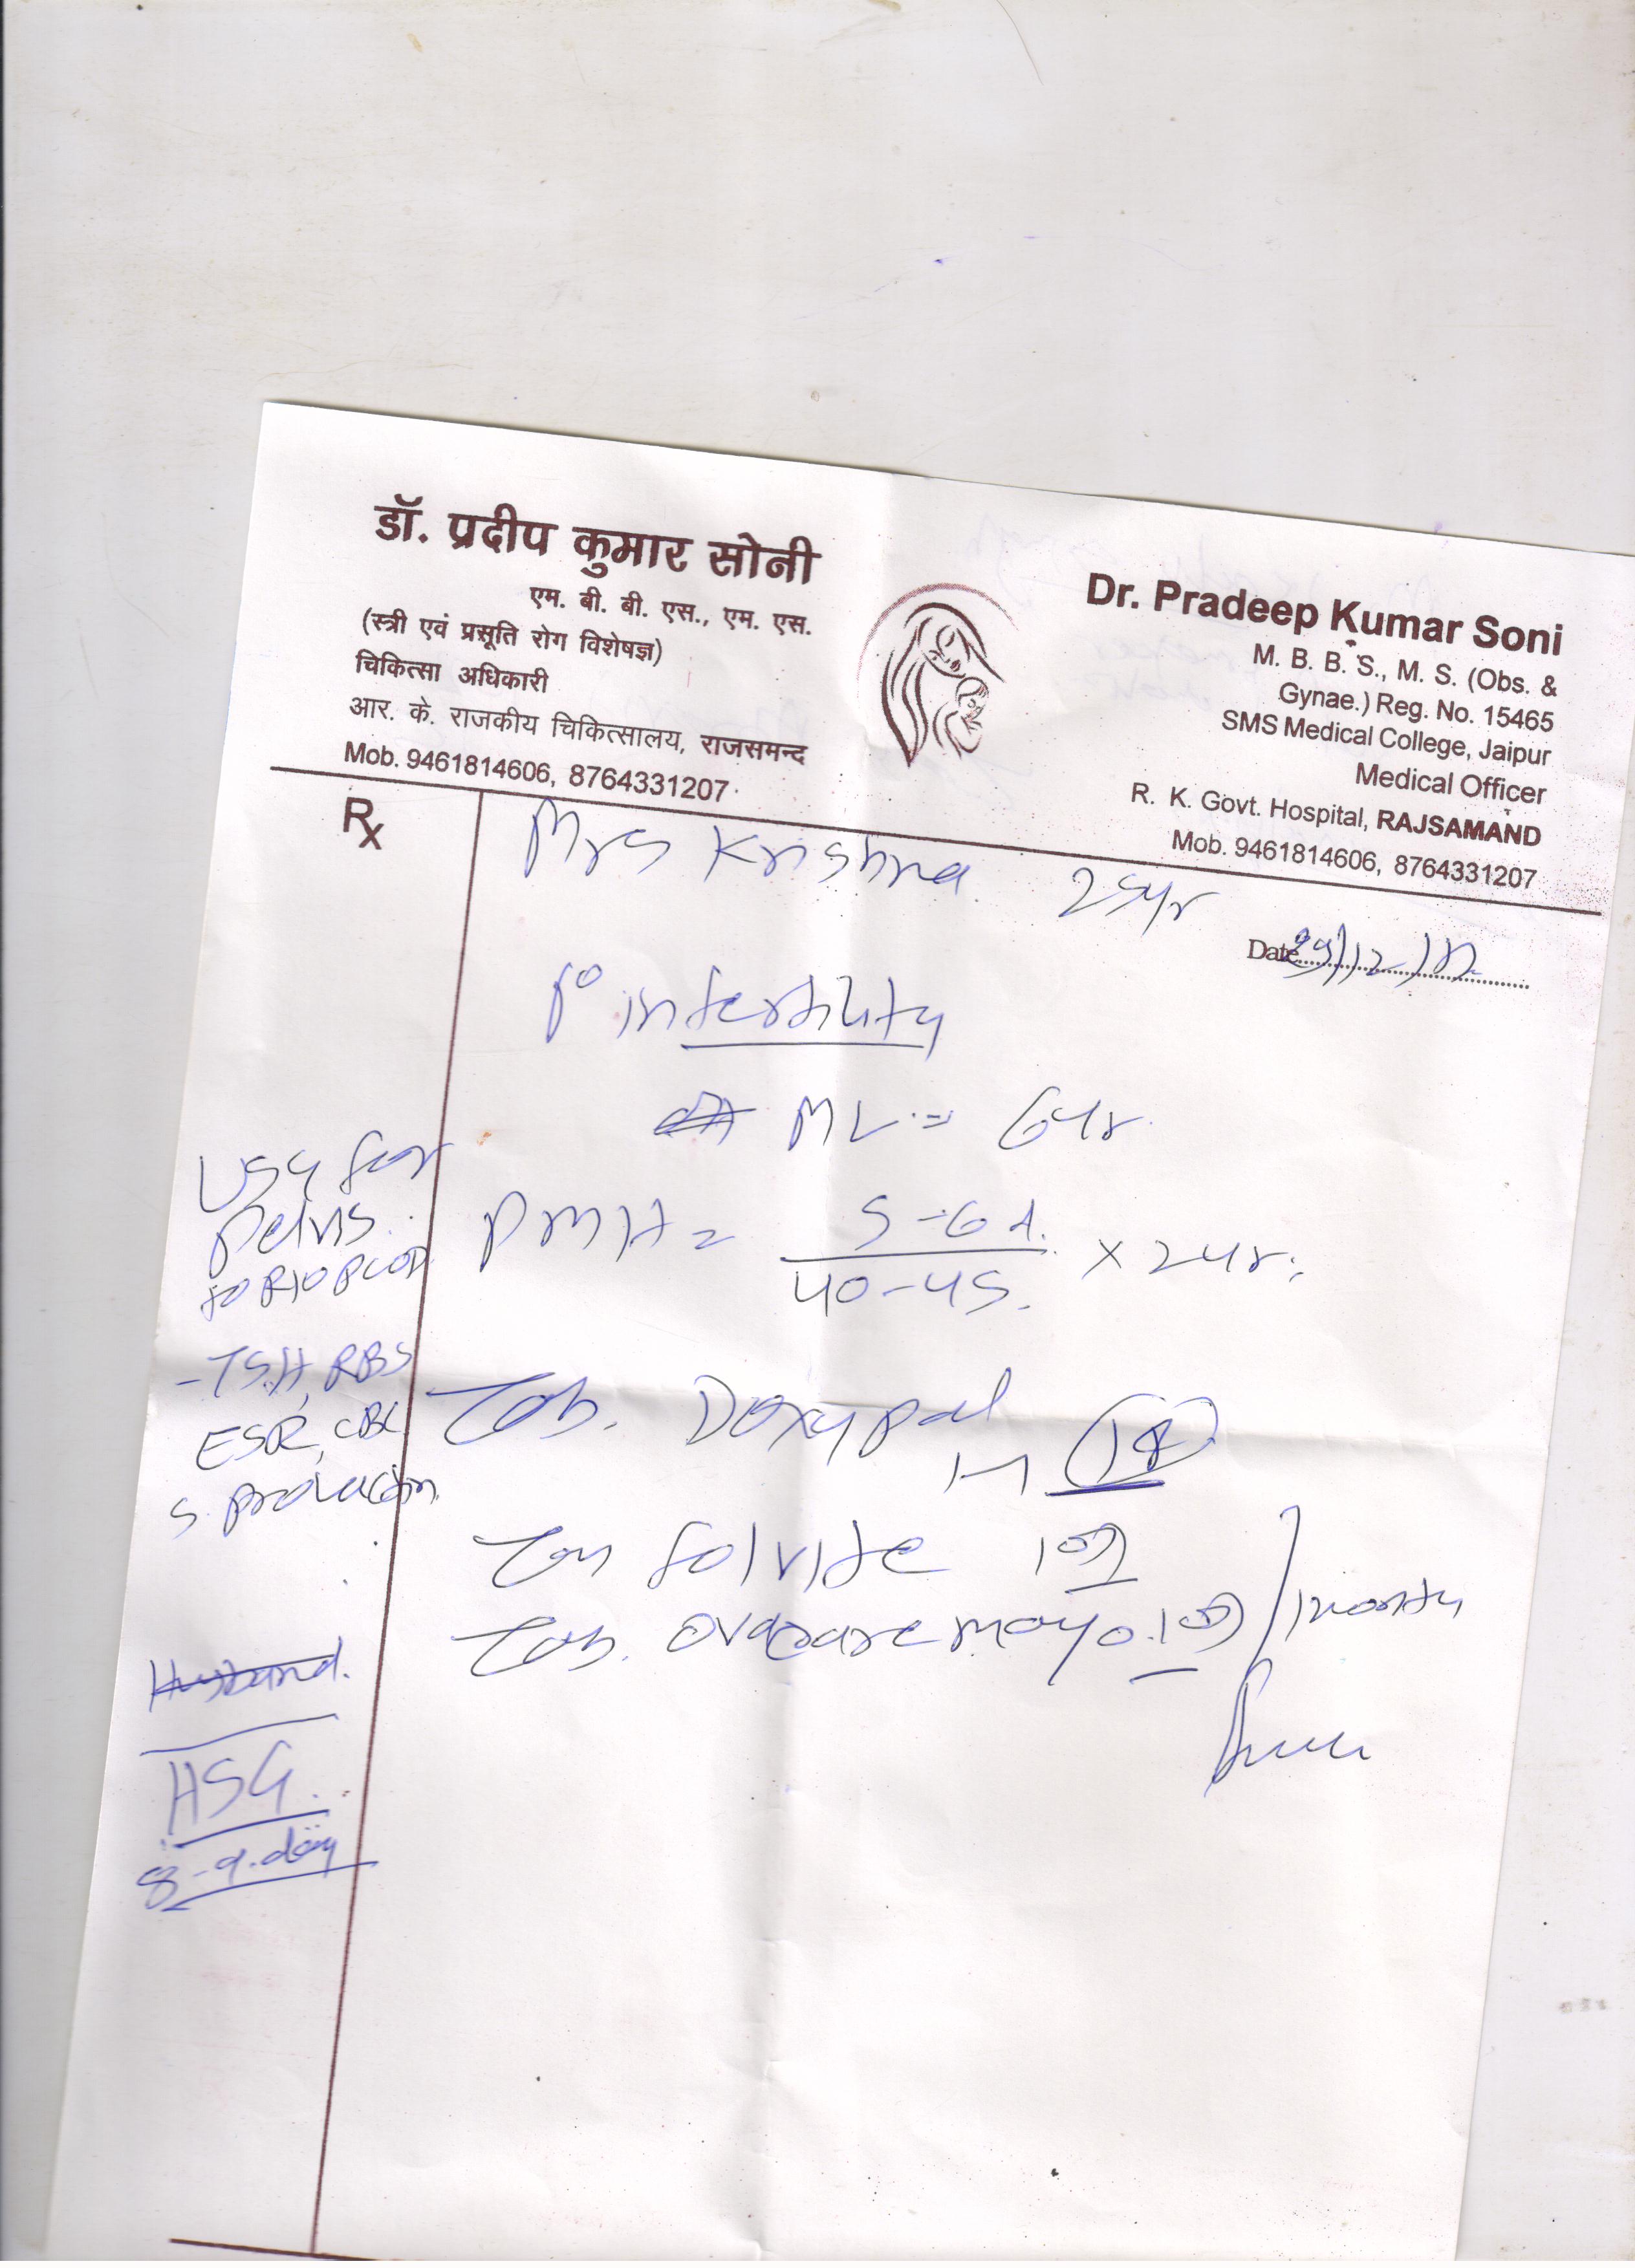 डॉ. प्रदीप कुमार सोनी
एम. बी. बी. एस., एम. एस.
(स्त्री एवं प्रसूति रोग विशेषज्ञ)
चिकित्सा अधिकारी
आर. के. राजकीय चिकित्सालय, राजसमन्द
Mob. 9461814606, 8764331207
Dr. Pradeep Kumar Soni
M. B. B. S., M. S. (Obs. &
Gynae.) Reg. No. 15465
SMS Medical College, Jaipur
Medical Officer
R. K. Govt. Hospital, RAJSAMAND
Mob. 9461814606, 8764331207
Rx
Mrs Krishna 25yr
Date 29/12/17
1° infertility
ML = 6yr.
PMH = 5-6 d. / 40-45. × 2yr.
USG for
pelvis
to R/O PCOD
- TSH, RBS
ESR, CBC
S. prolactin
Tab. Doxypal
1-1
Tab Folvite 1 OD
Tab. Ovacare myo 1 OD / 1 month
Husband.
HSG.
8-9. day